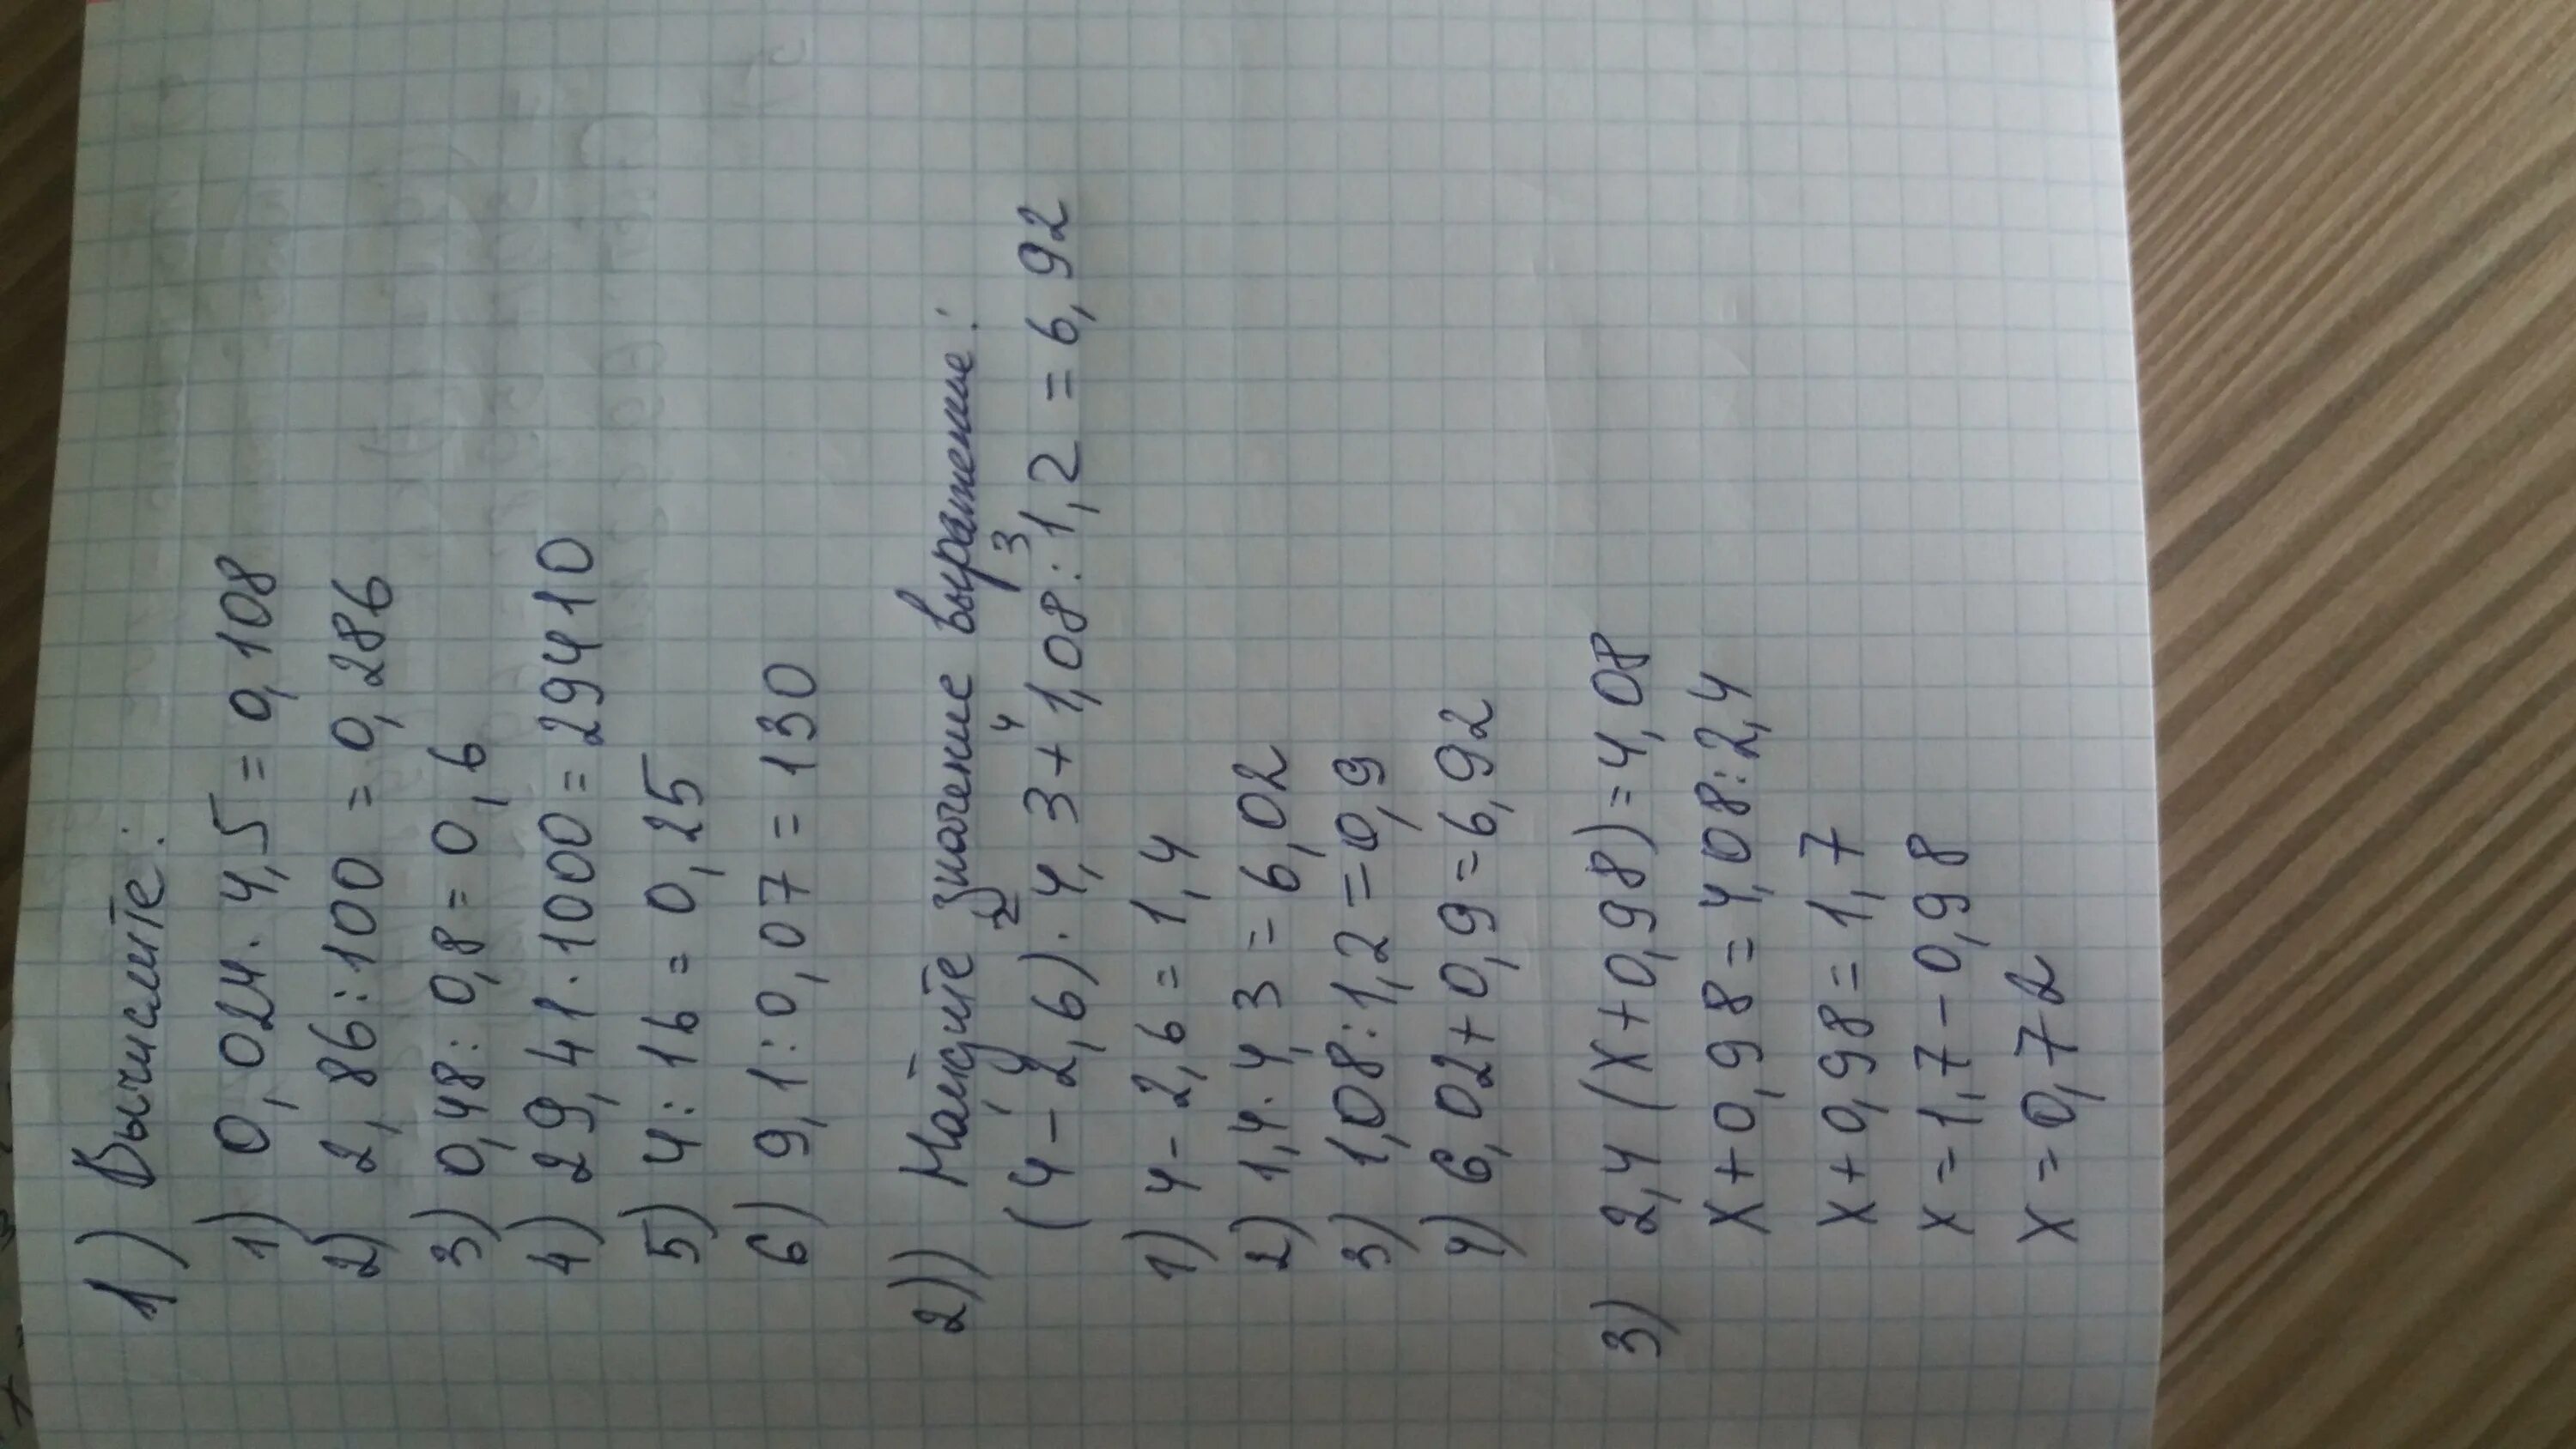 1) Вычислите:
1) 0,024·4,5=0,108
2) 2,86:100=0,286
3) 0,48:0,8=0,6
4) 29,41·1000=29410
5) 4:16=0,25
6) 9,1:0,07=130
2)) Найдите значение выражение:
2 4 3
(4-2,6)·4,3+1,08:1,2=6,92
1) 4-2,6=1,4
2) 1,4·4,3=6,02
3) 1,08:1,2=0,9
4) 6,02+0,9=6,92
3) 2,4(x+0,98)=4,08
x+0,98=4,08:2,4
x+0,98=1,7
x=1,7-0,98
x=0,72